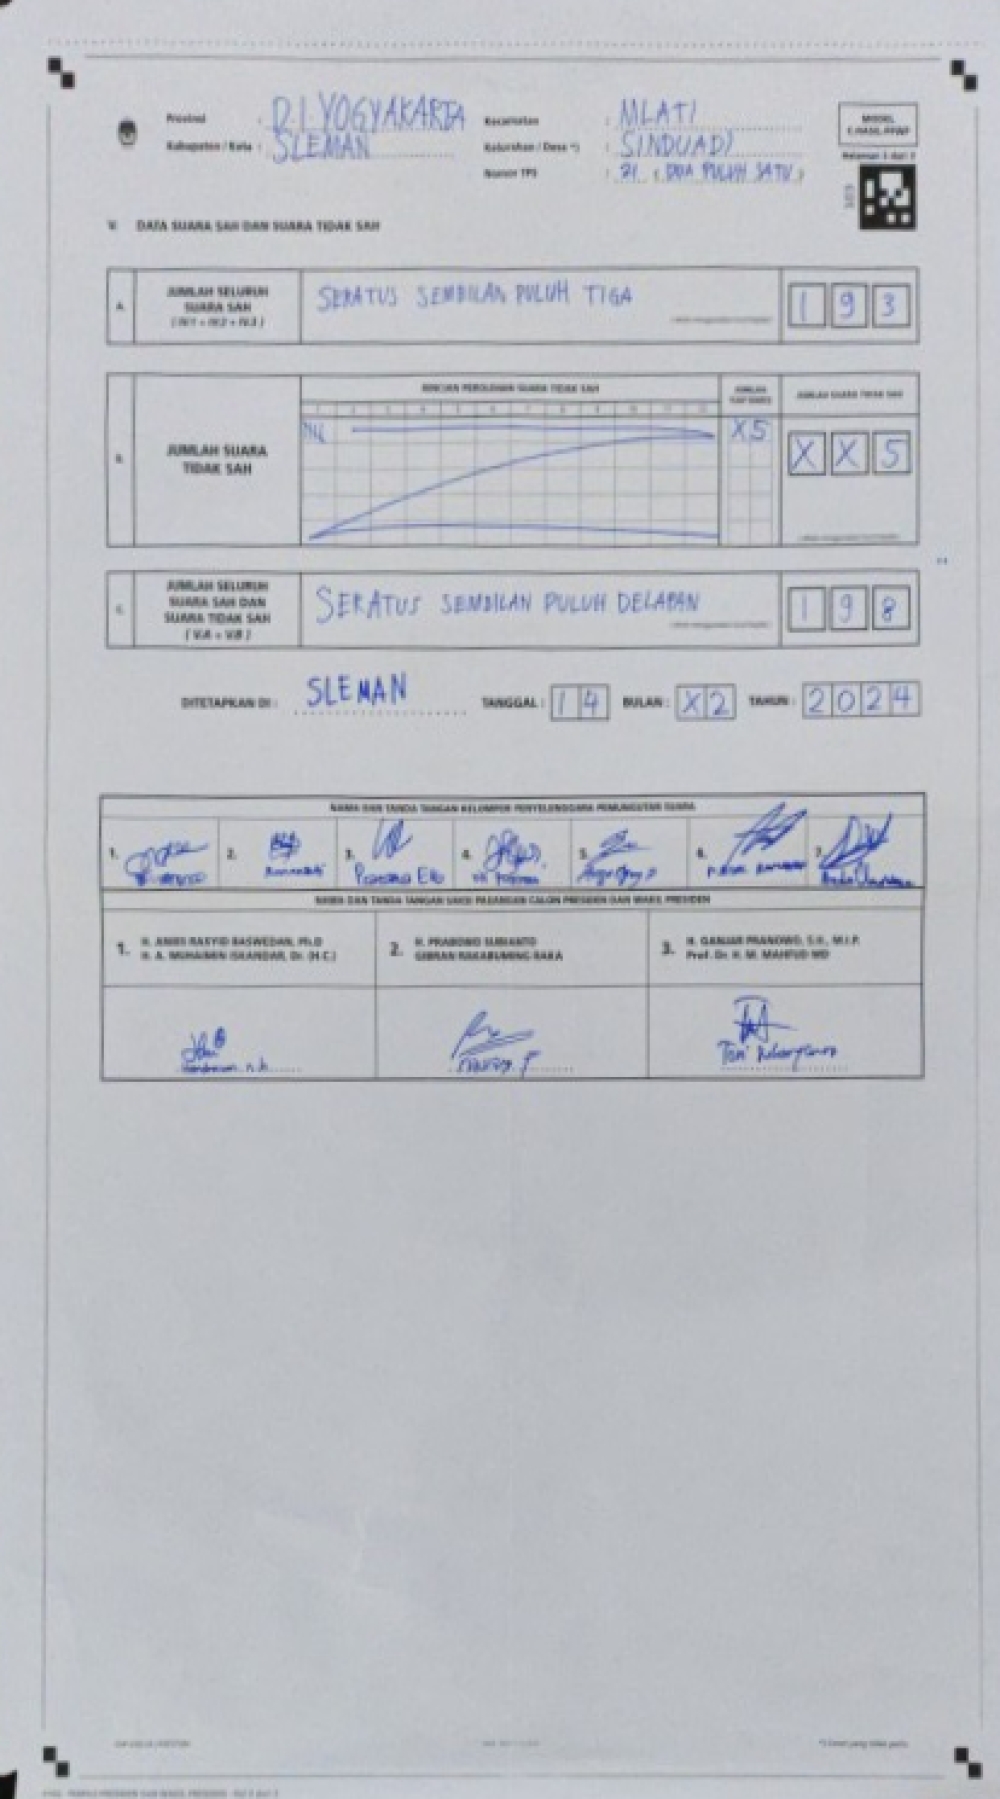 Provinsi : D.I. YOGYAKARTA
Kabupaten / Kota : SLEMAN
Kecamatan : MLATI
Kelurahan / Desa *) : SINDUADI
Nomor TPS : 21 ( DUA PULUH SATU )
MODEL
C.HASIL-PPWP
Halaman 3 dari 3
V. DATA SUARA SAH DAN SUARA TIDAK SAH
A. JUMLAH SELURUH
SUARA SAH
( IV.1 + IV.2 + IV.3 )
SERATUS SEMBILAN PULUH TIGA
1 9 3
RINCIAN PEROLEHAN SUARA TIDAK SAH
JUMLAH SUARA TIDAK SAH
1 2 3 4 5 6 7 8 9 10 11 12
B. JUMLAH SUARA
TIDAK SAH
X 5
X X 5
C. JUMLAH SELURUH
SUARA SAH DAN
SUARA TIDAK SAH
( V.A + V.B )
SERATUS SEMBILAN PULUH DELAPAN
1 9 8
DITETAPKAN DI : SLEMAN TANGGAL : 1 4 BULAN : X 2 TAHUN : 2 0 2 4
NAMA DAN TANDA TANGAN KELOMPOK PENYELENGGARA PEMUNGUTAN SUARA
1. 2. 3. 4. 5. 6. 7.
NAMA DAN TANDA TANGAN SAKSI PASANGAN CALON PRESIDEN DAN WAKIL PRESIDEN
1. H. ANIES RASYID BASWEDAN, Ph.D
H. A. MUHAIMIN ISKANDAR, Dr. (H.C.)
2. H. PRABOWO SUBIANTO
GIBRAN RAKABUMING RAKA
3. H. GANJAR PRANOWO, S.H., M.I.P.
Prof. Dr. H. M. MAHFUD MD
*) Coret yang tidak perlu